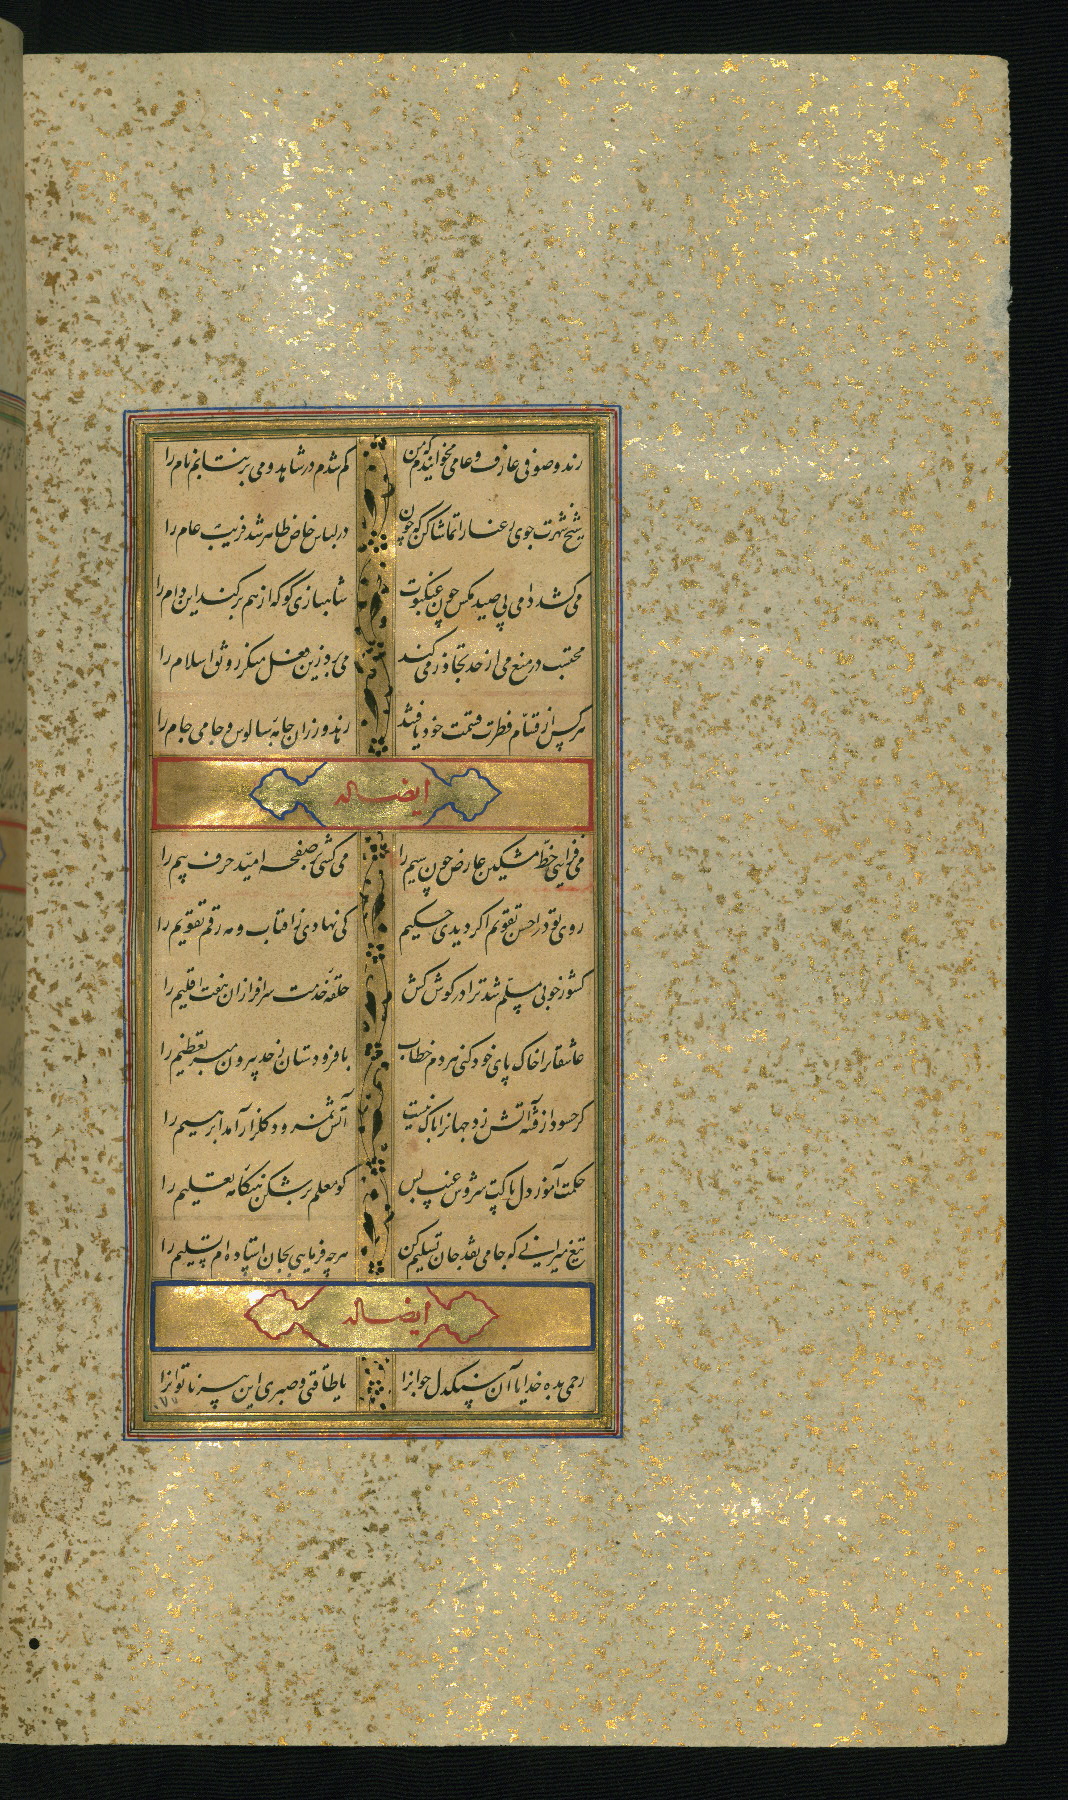 رند و صوفی عارف و عامی نخوانندم که من کم شدم در شاهد و می بر نتابم نام را
شیخ شهرت جوی رعنا را تماشا کن که چون در لباس خاص ظاهر شد فریب عام را
می کشد دامی پی صید مکس چون عنکبوت شاهبازی کو که از هم بر کند این دام را
محتسب در منع می از حد تجاوز می کند می برد زین فعل منکر رونق اسلام را
هر کس از قسّام فطرت قسمت خود یافتند زهد ورزان جامه سالوس و جامی جام را
ایضا له
می فزایی خط مشکین عارض چون سیم را می کشی بر صفحه امید حرف بیم را
روی تو در احسن تقویم اکر دیدی حکیم کی نهادی ز آفتاب و مه رقم تقویم را
کشور خوبی مسلّم شد ترا در کوش کش حلقه خدمت سرافرازان هفت اقلیم را
عاشقانرا خاک پای خود کنی هر دم خطاب با فرودستان ز حد بیرون مبر تعظیم را
کر حسود از فتنه آتش زد جهانرا باک نیست آتش نمرود کلزار آمد ابرهیم را
حکمت آموز دل پاکت سروش غیب بس کو معلم بر شکن هنکامه تعلیم را
تیغ میرانی که جامی نقد جان تسلیم کن هر چه فرمایی بجان استاده ام تسلیم را
ایضا له
رحمی بده خدایا آن سنکدل جوانرا یا طاقتی و صبری این پیر ناتوانرا